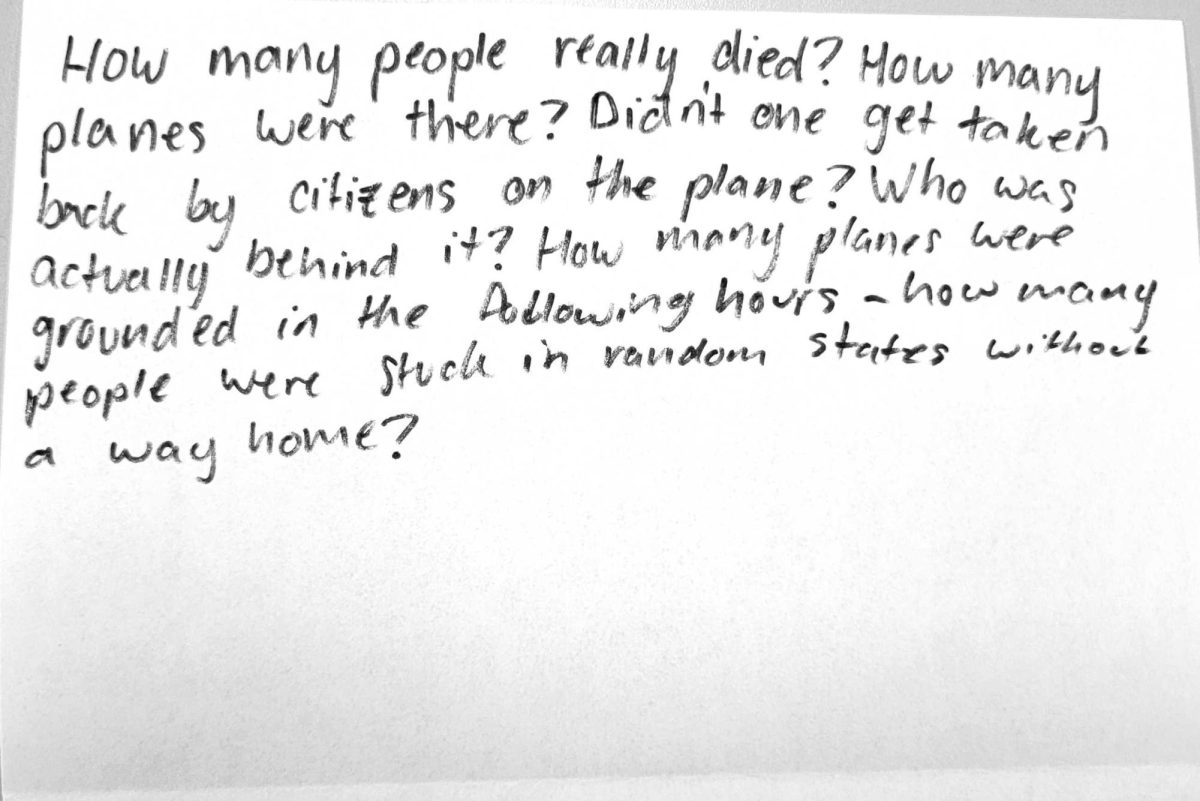 How many people really died? How many
planes were there? Didn't one get taken
back by citizens on the plane? Who was
actually behind it? How many planes were
grounded in the following hours - how many
people were stuck in random states without
a way home?